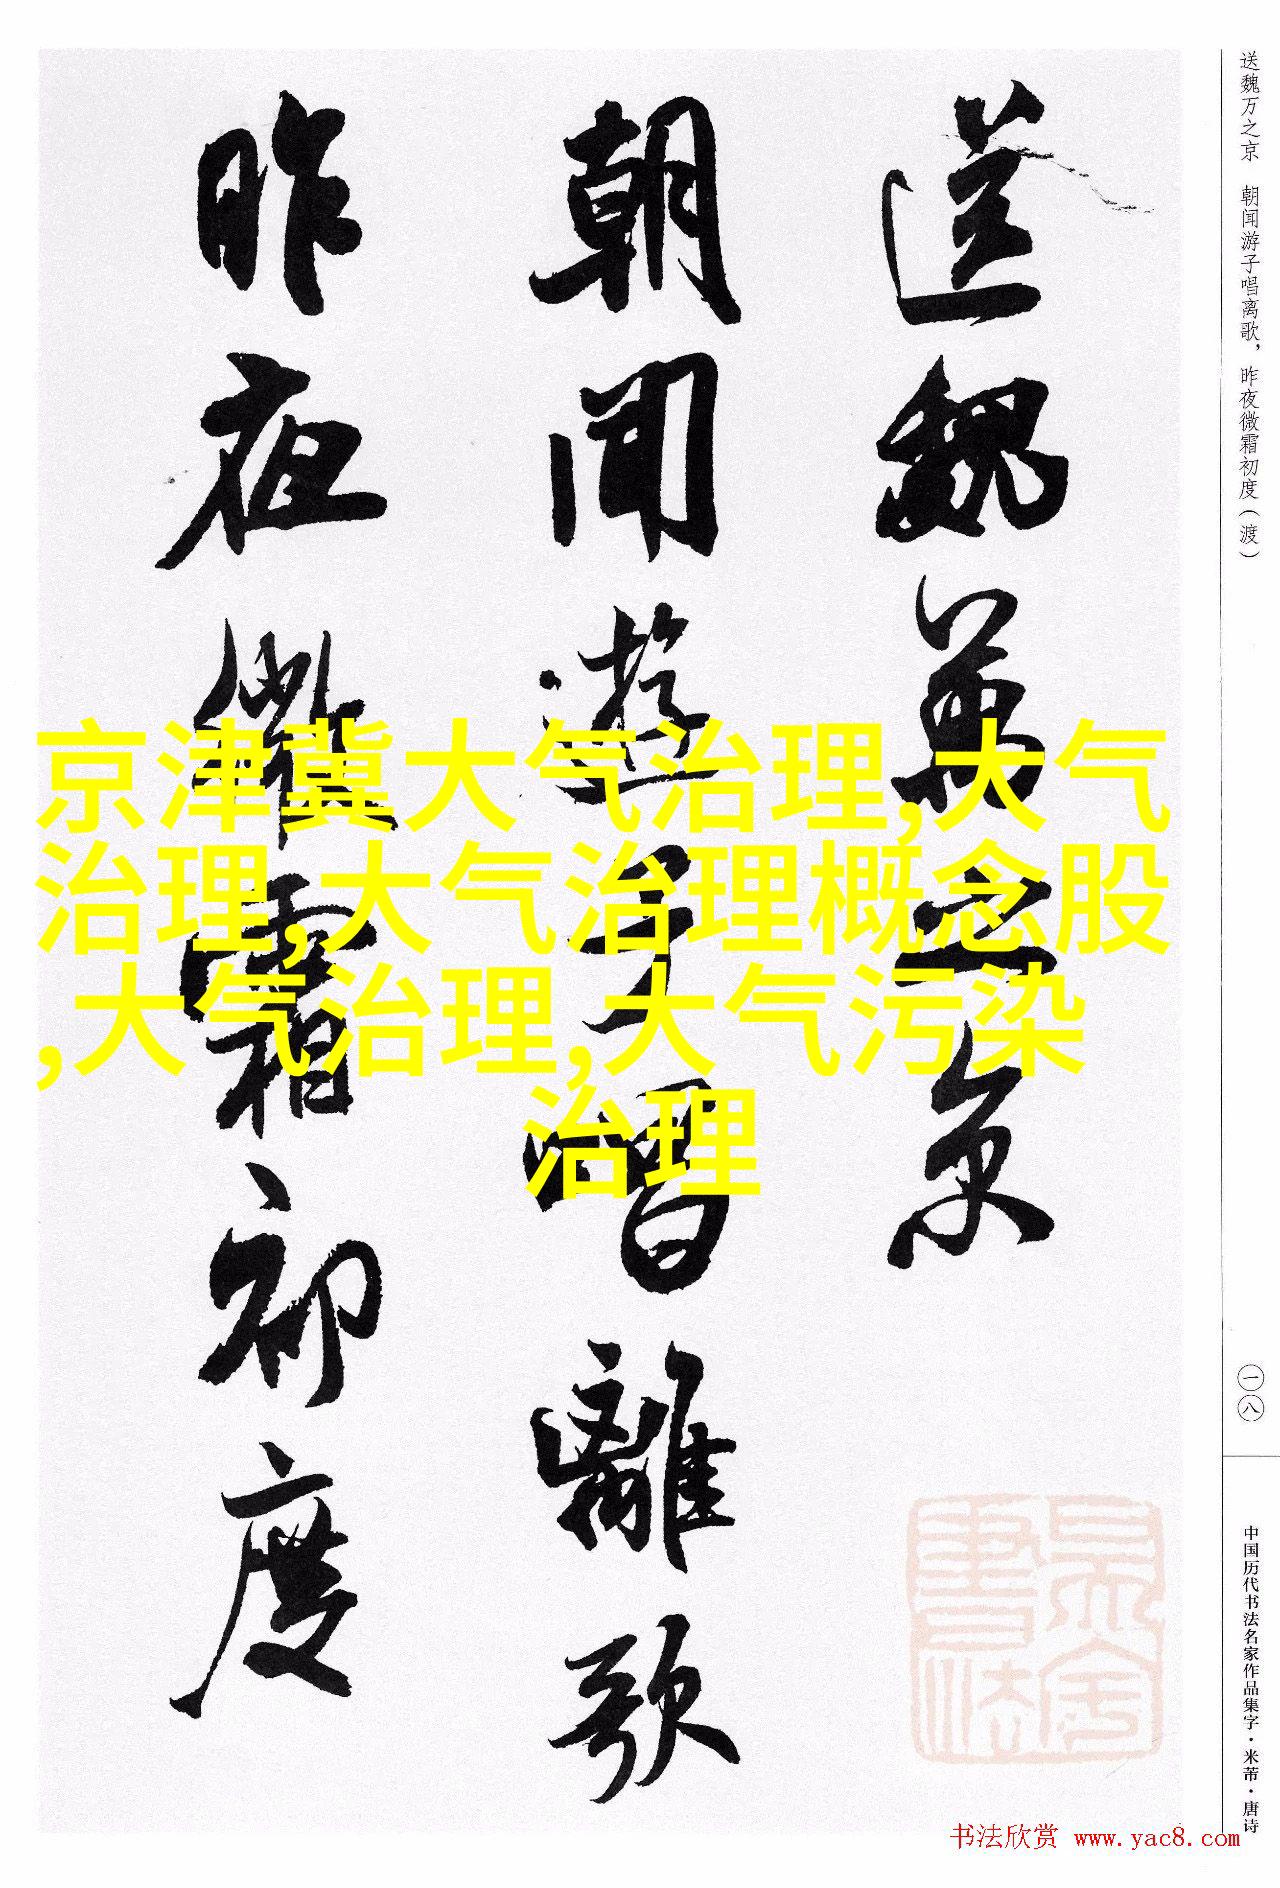 送魏万之京 朝闻游子唱离歌，昨夜微霜初度（渡）
送魏萬之京
朝聞遊子唱離歌
昨夜微霜初度
京津冀大气治理,大气
治理,大气治理概念股
,大气治理,大气污染
治理
一八
中国历代书法名家作品集字·米芾·唐诗
书法欣赏 www.yac8.com